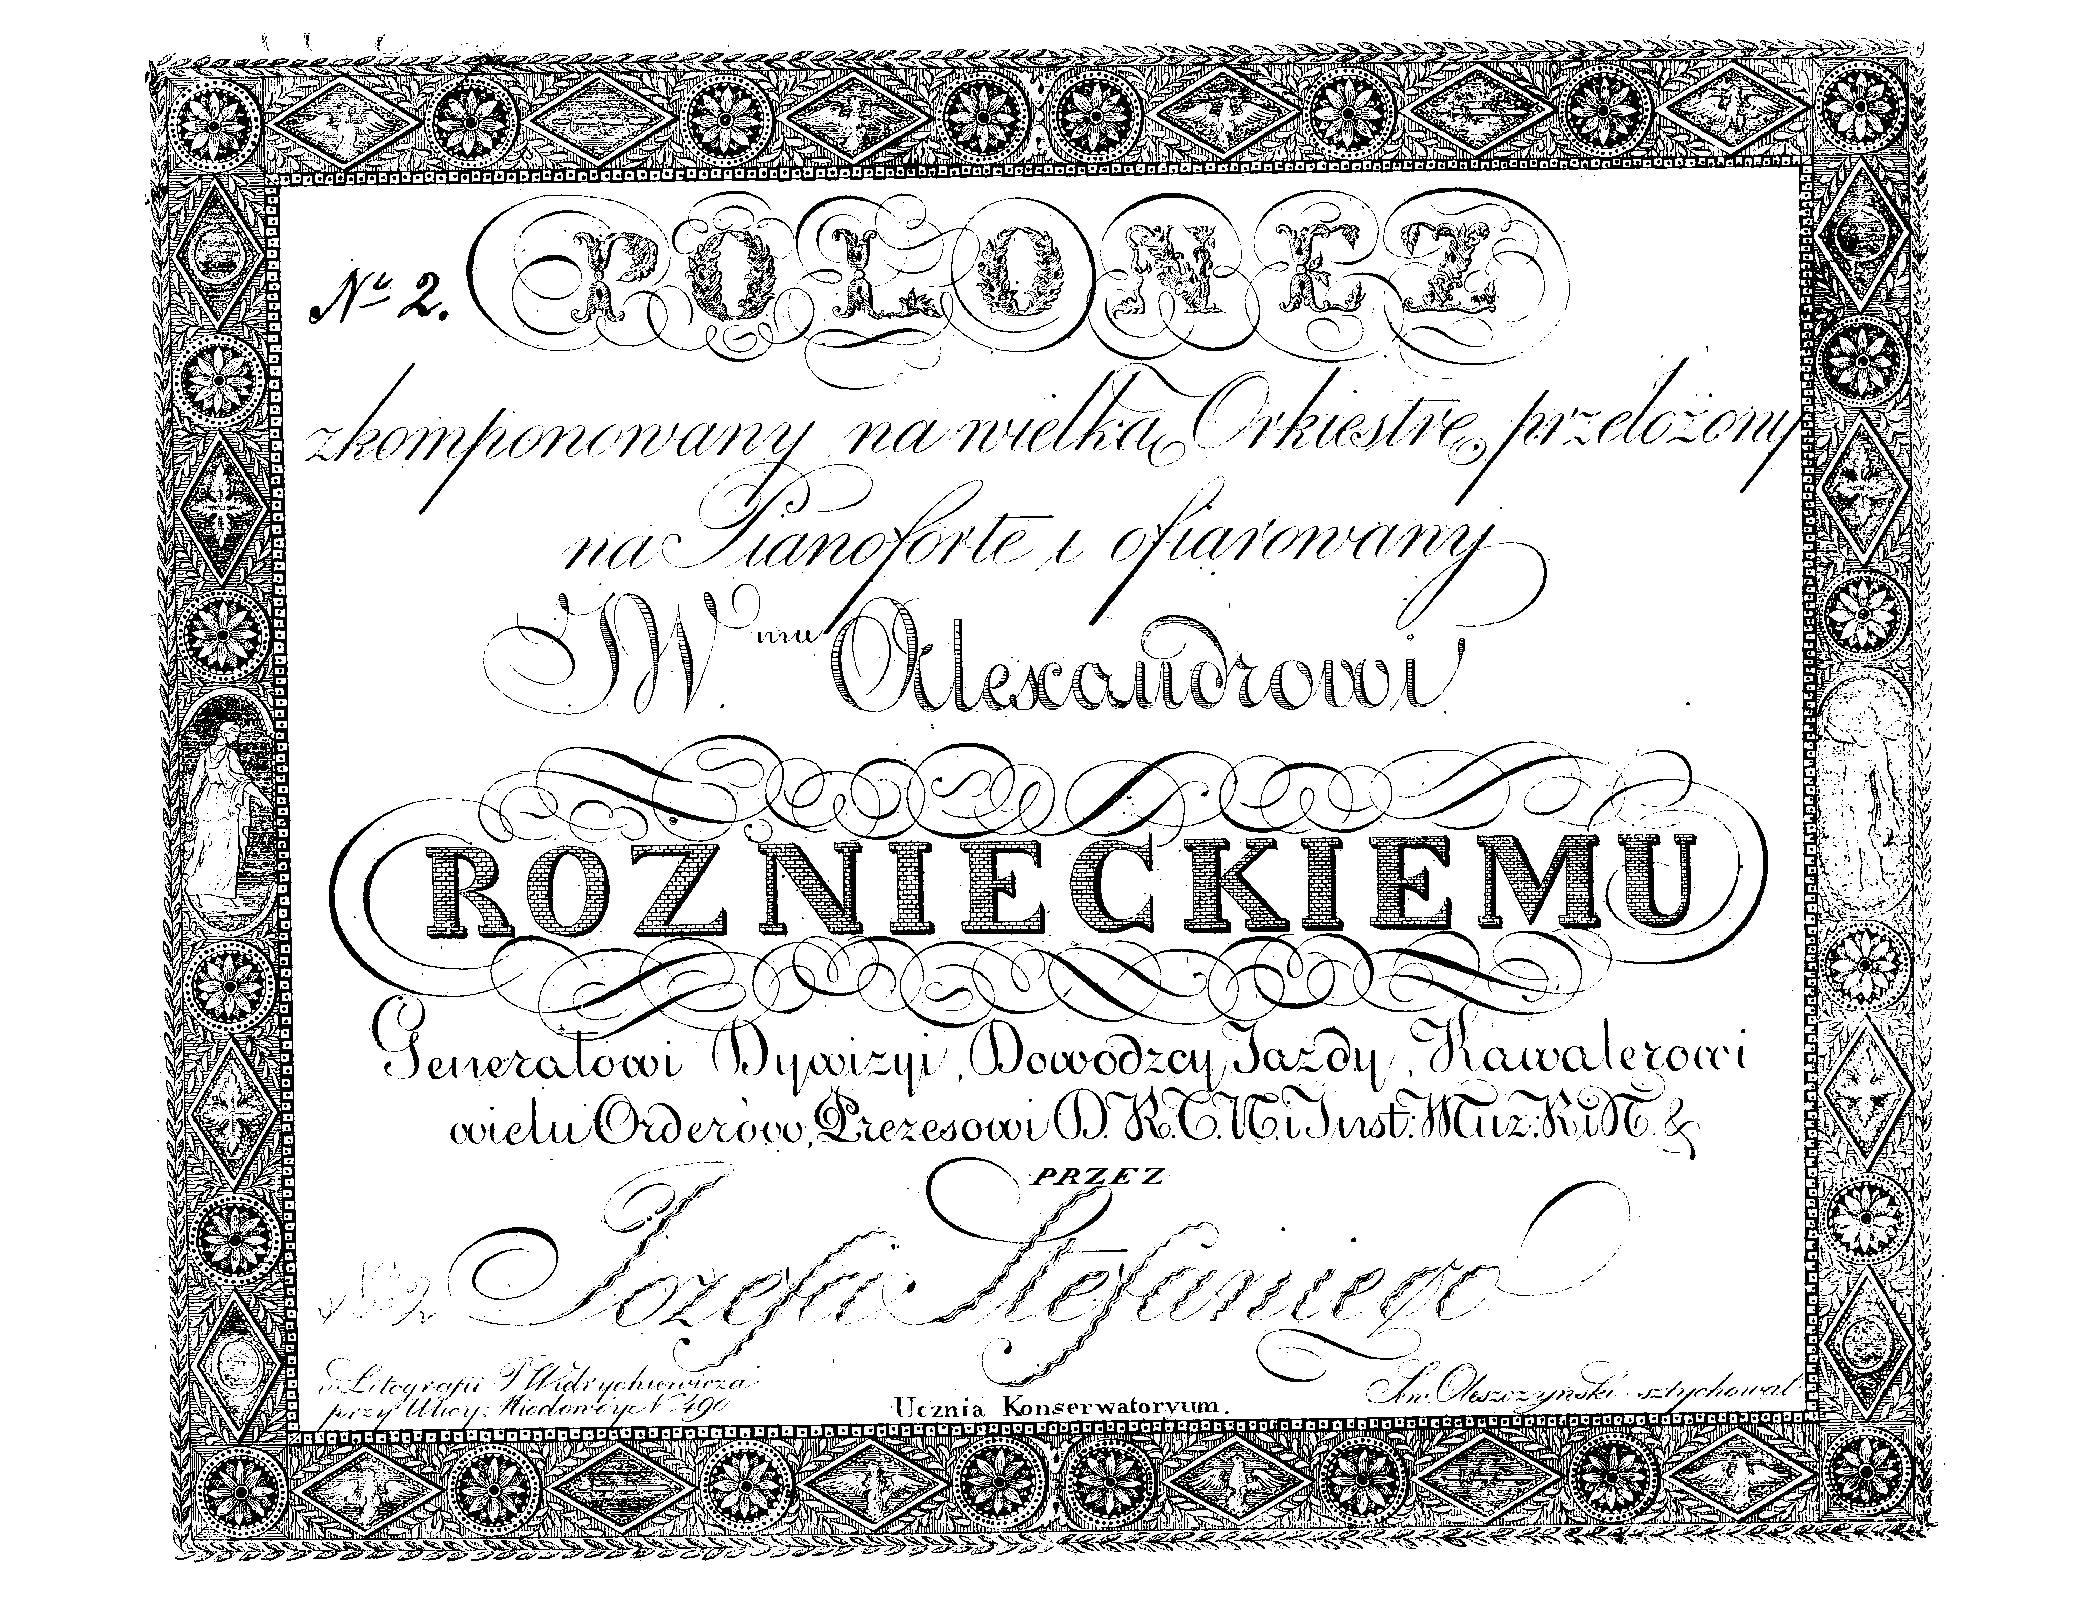 POLONEZ
No 2.
zkomponowany na wielką Orkiestrę, przełożony
na Pianoforte i ofiarowany
JW.mu Alexandrowi
ROŻNIECKIEMU
Generałowi Dywizyi, Dowodzcy Jazdy, Kawalerowi
wielu Orderów, Prezesowi D.R.T.N. i Inst: Muz: R. i N. &
PRZEZ
Józefa Stefaniego
Ucznia Konserwatoryum.
w Litografii Wł
przy Ulicy Miodowéy N 490
Oleszczyński sztychował